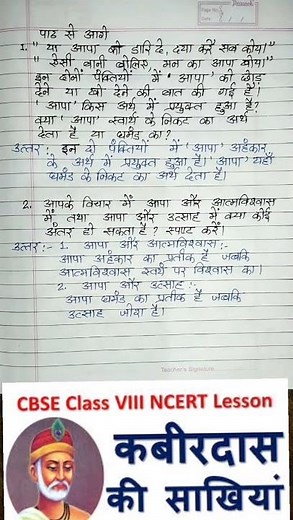 पाठ से आगे
1. " या आपा को डारि दे, दया करै सब कोय।"
" ऐसी बानी बोलिए, मन का आपा खोय।"
इन दोनों पंक्तियों में 'आपा' को छोड़
देने या खो देने की बात की गई है।
'आपा' किस अर्थ में प्रयुक्त हुआ है?
क्या 'आपा' स्वार्थ के निकट का अर्थ
देता है या घमंड का?
उत्तर:- इन दो पंक्तियों में 'आपा' अहंकार
के अर्थ में प्रयुक्त हुआ है। 'आपा' यहाँ
घमंड के निकट का अर्थ देता है।
2. आपके विचार में आपा और आत्मविश्वास
में, तथा आपा और उत्साह में क्या कोई
अंतर हो सकता है? स्पष्ट करें।
उत्तर:- 1. आपा और आत्मविश्वास:-
आपा अहंकार का प्रतीक है जबकि
आत्मविश्वास स्वयं पर विश्वास का।
2. आपा और उत्साह:-
आपा घमंड का प्रतीक है जबकि
उत्साह जोश है।
Teacher's Signature
CBSE Class VIII NCERT Lesson
कबीरदास
की साखियां